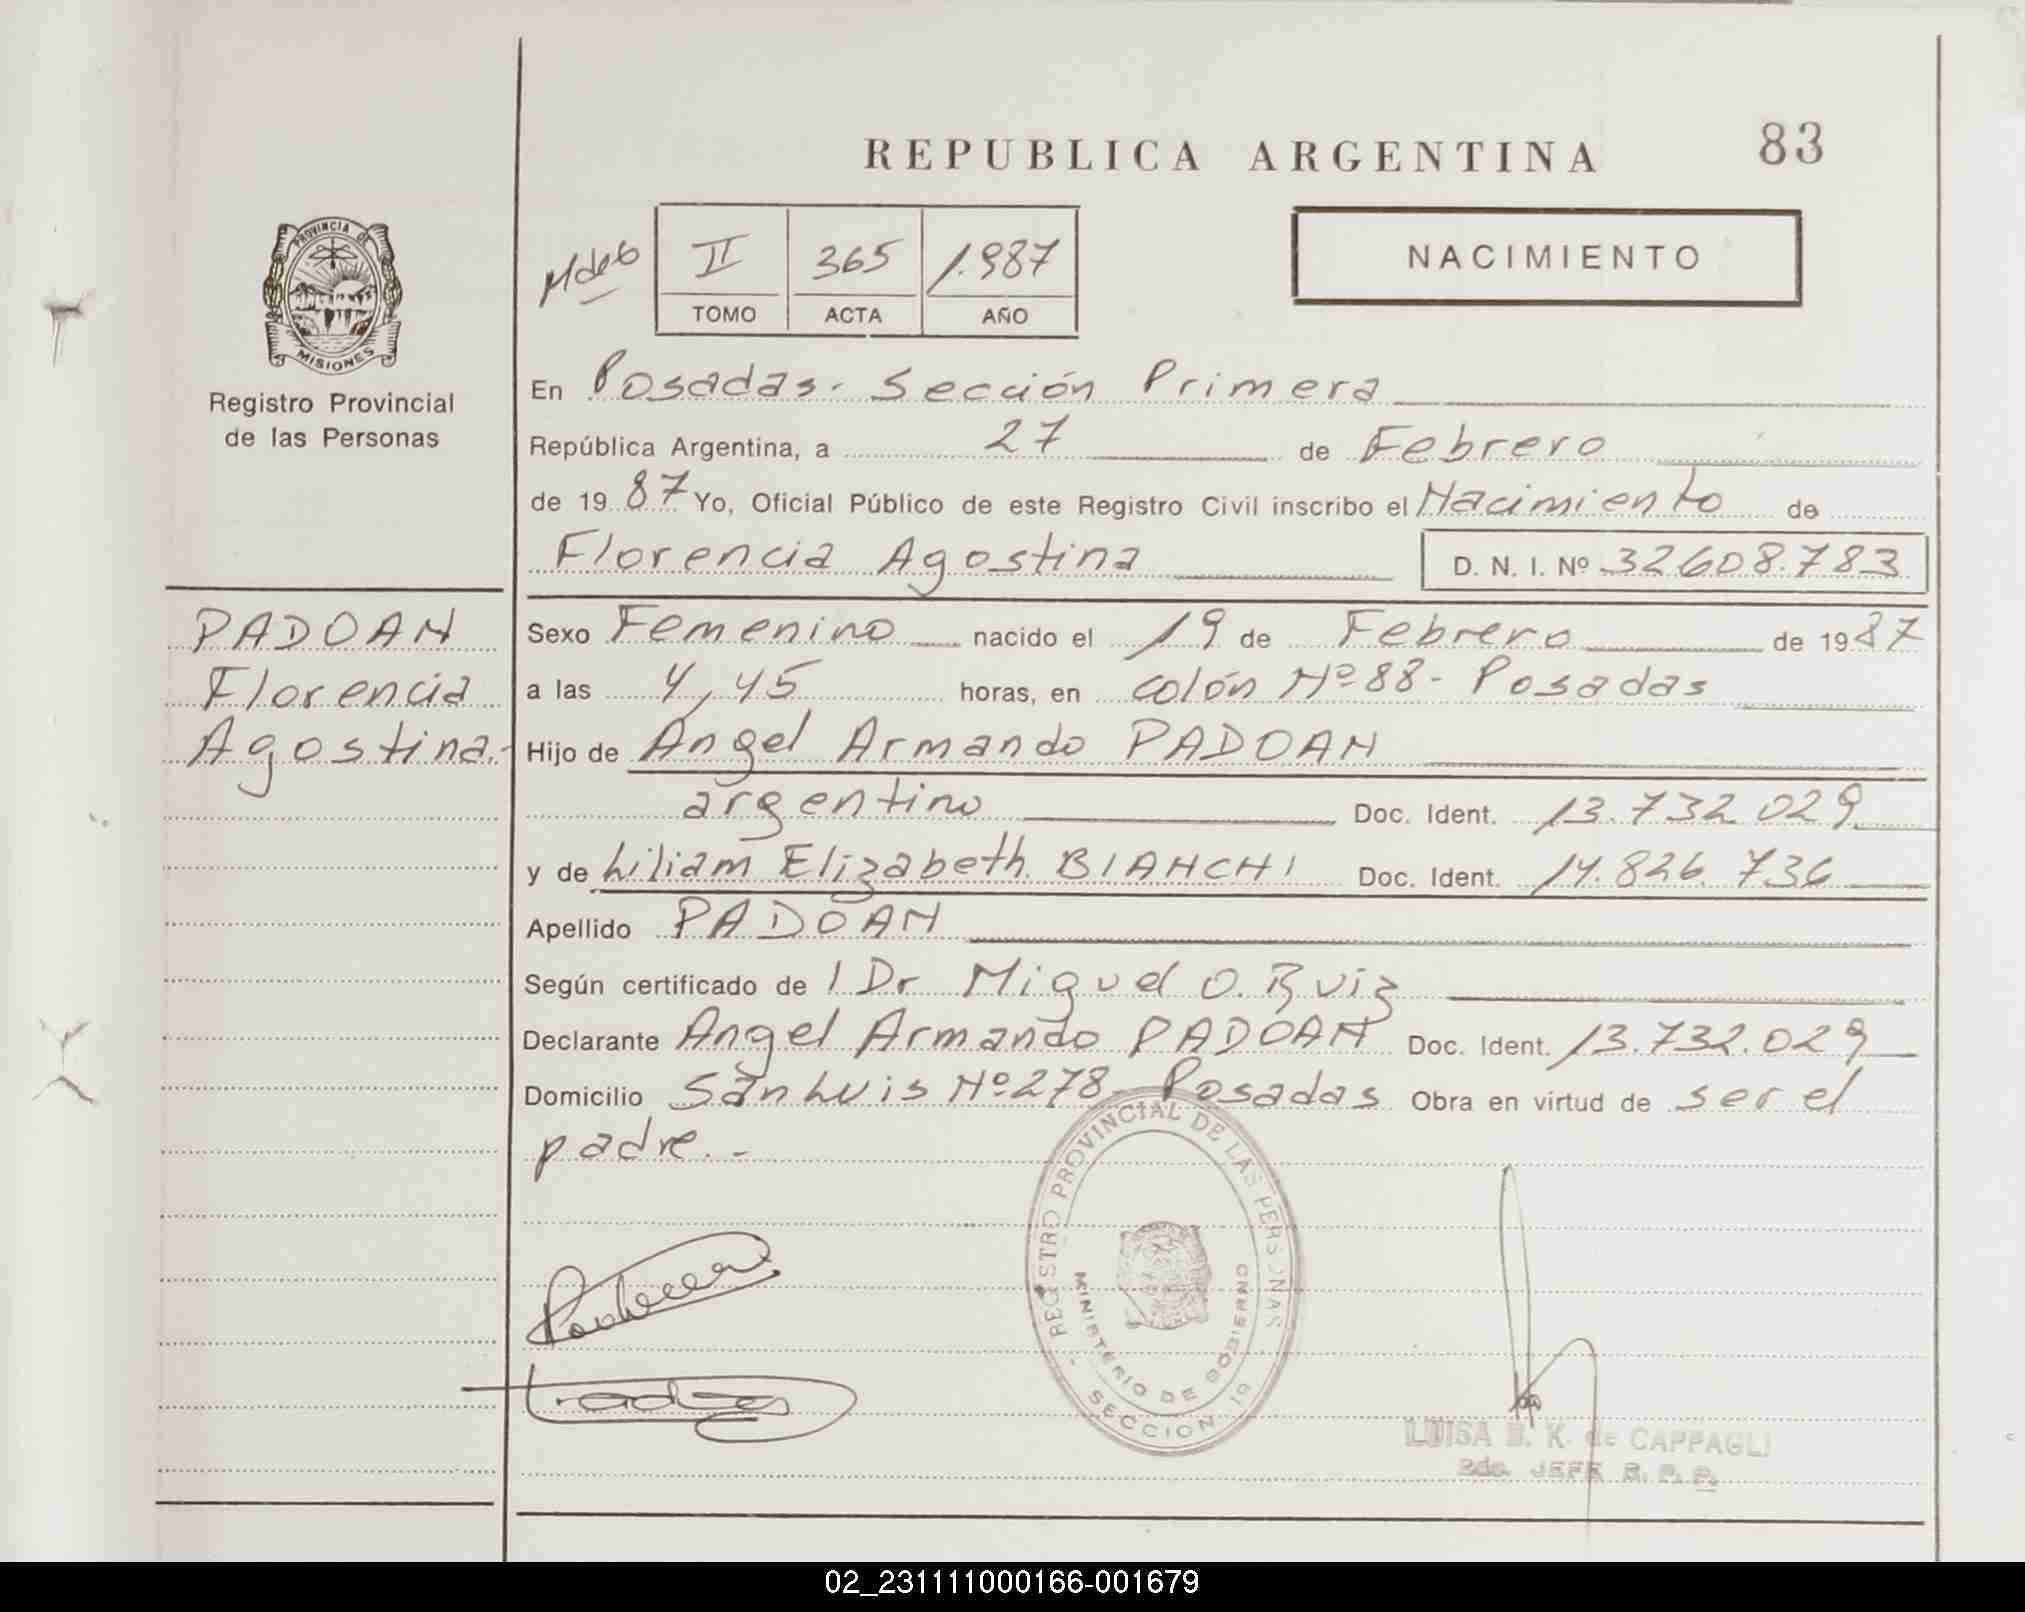 REPUBLICA ARGENTINA
83
PROVINCIA DE
MISIONES
Registro Provincial
de las Personas
II 365 1.987
TOMO ACTA AÑO
NACIMIENTO
En Posadas - Sección Primera
República Argentina, a 27 de Febrero
de 19 87 Yo, Oficial Público de este Registro Civil inscribo el Nacimiento de
Florencia Agostina D. N. I. Nº 32608.783
PADOAN
Florencia
Agostina.-
Sexo Femenino nacido el 19 de Febrero de 19 87
a las 4,45 horas, en colón Nº 88 - Posadas
Hijo de Angel Armando PADOAN
argentino Doc. Ident. 13.732.029
y de Liliam Elizabeth BIANCHI Doc. Ident. 14.826.736
Apellido PADOAN
Según certificado de l Dr Miguel O. Ruiz
Declarante Angel Armando PADOAN Doc. Ident. 13.732.029
Domicilio San Luis Nº 278 - Posadas Obra en virtud de ser el
padre.-
REGISTRO PROVINCIAL DE LAS PERSONAS
MINISTERIO DE GOBIERNO
SECCION 1ª
LUISA K. de CAPPAGLI
2do. JEFE R. P. P.
02_231111000166-001679